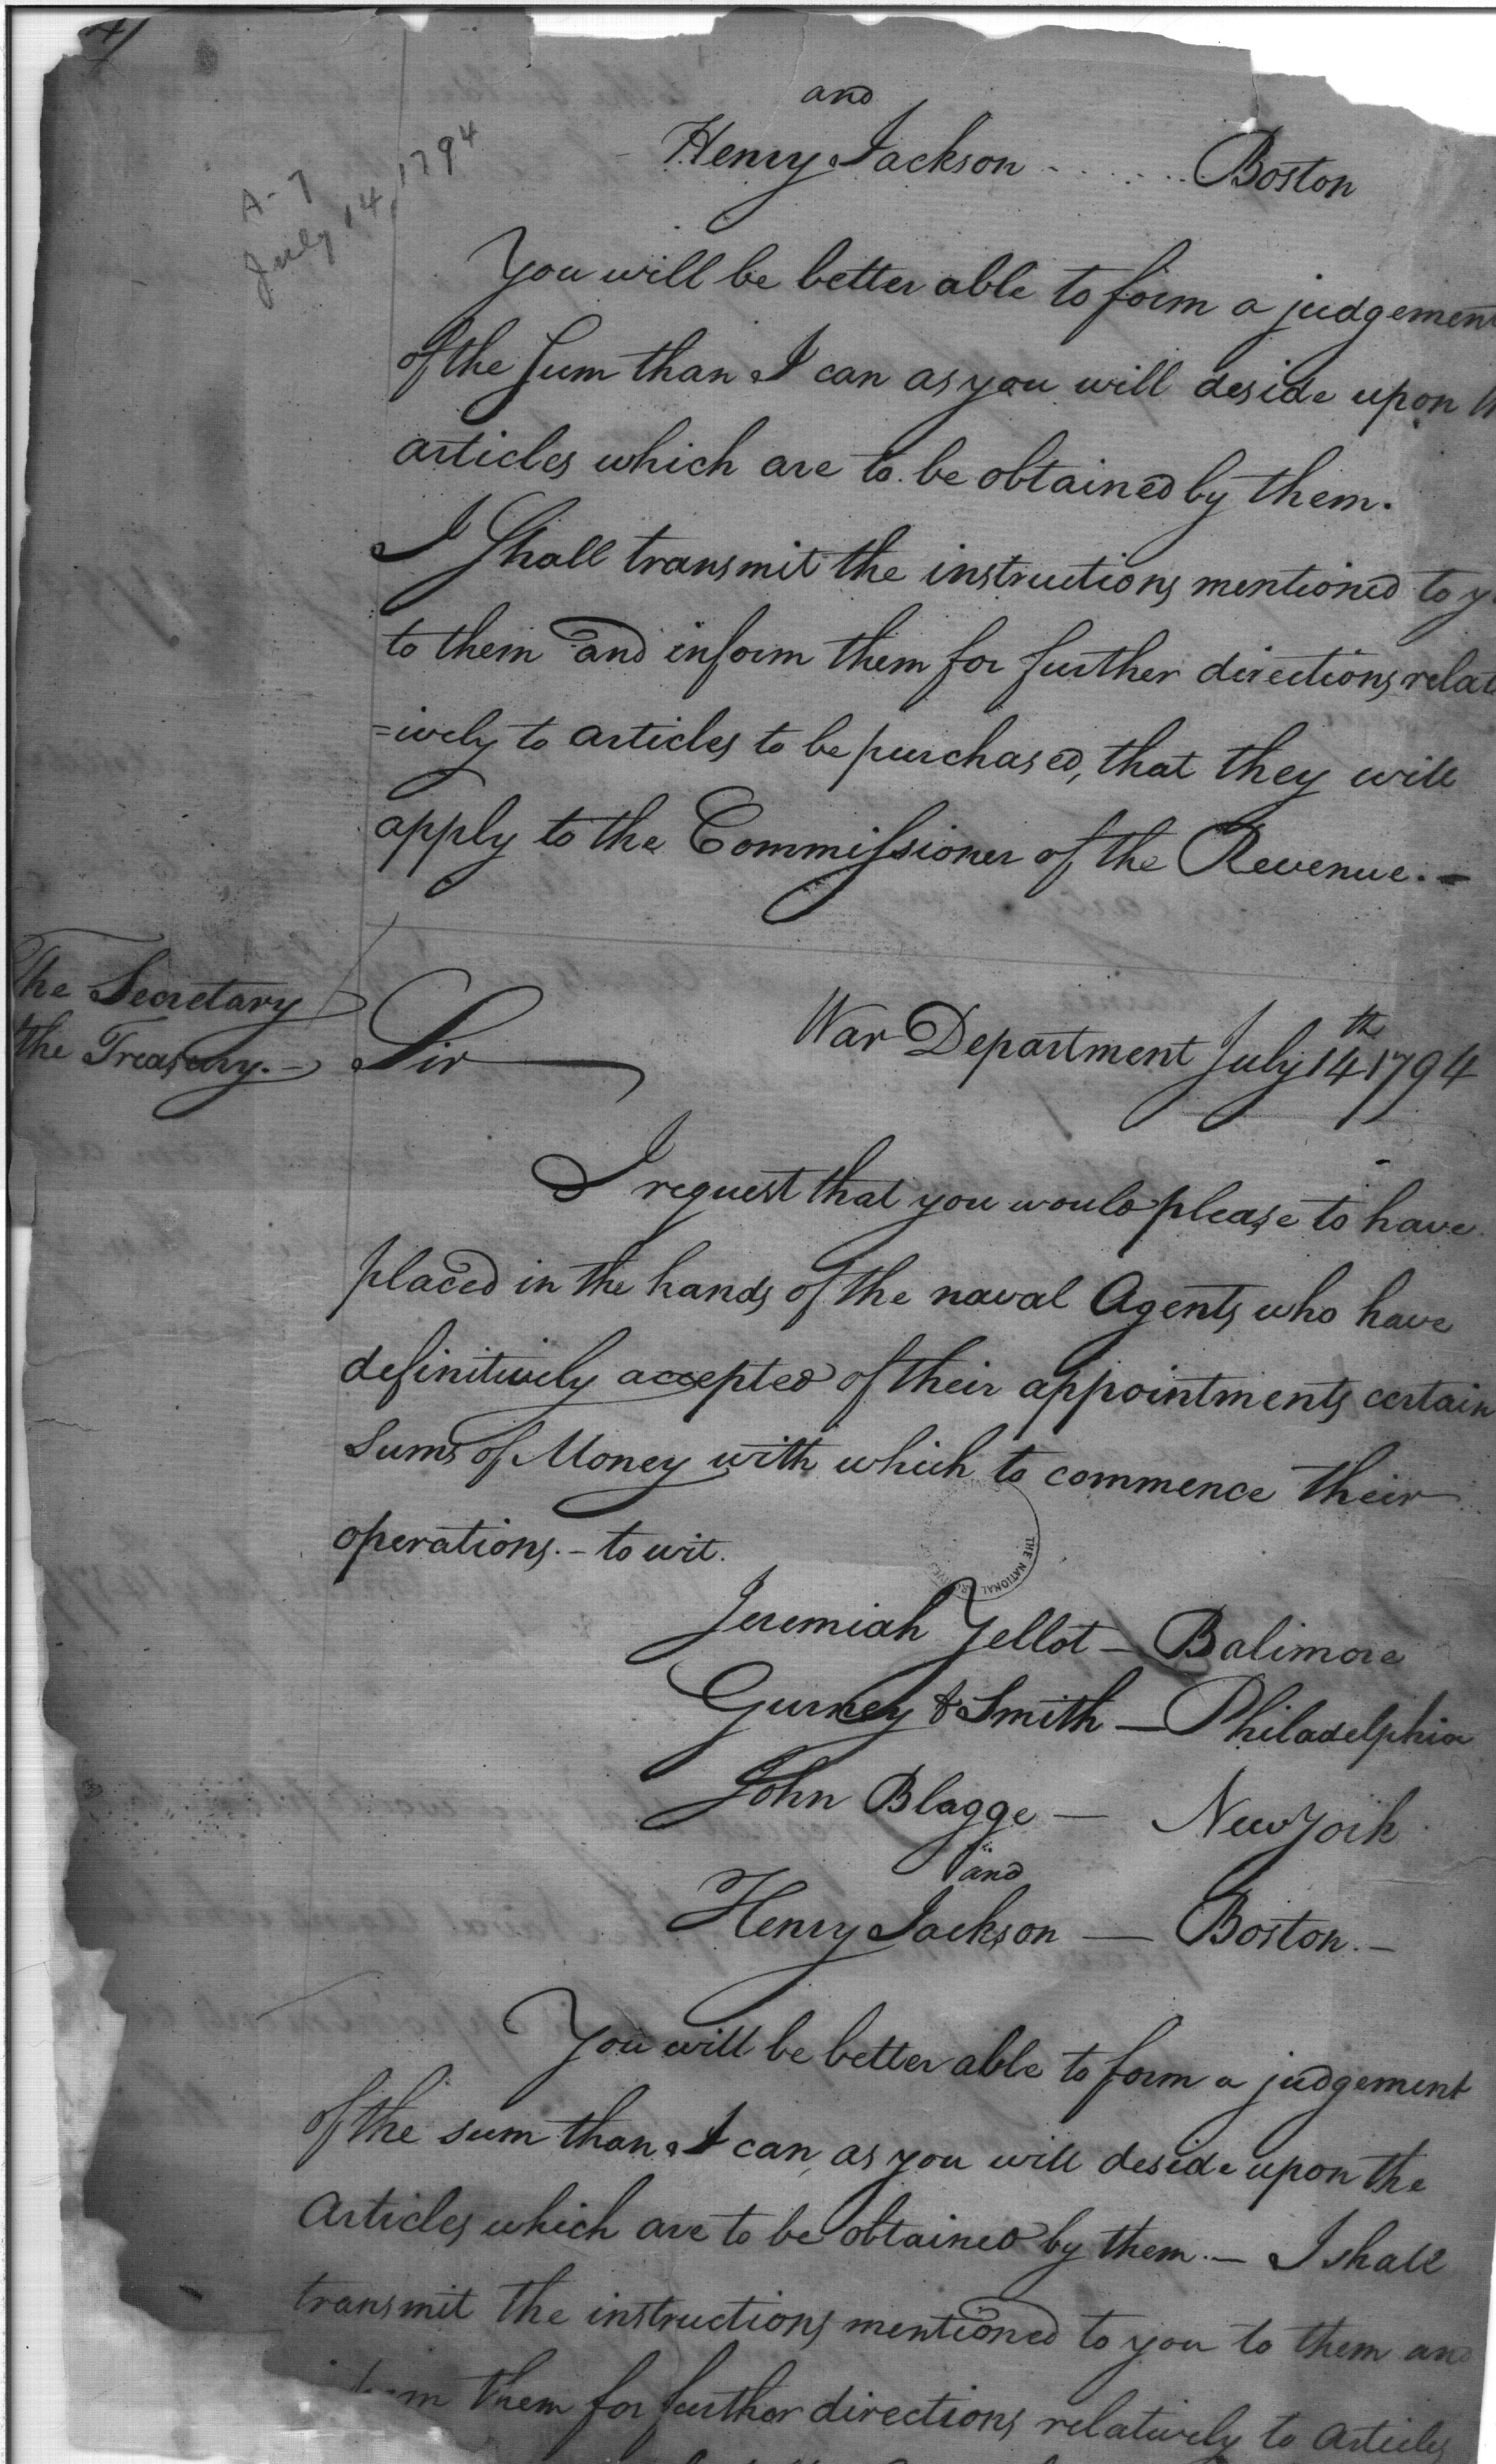 A-7
July 14, 1794
and
Henry Jackson - . . . . . Boston
You will be better able to form a judgemen
of the Sum than I can as you will deside upon
articles which are to be obtained by them.
I Shall transmit the instructions mentioned to y
to them and inform them for further directions relat
=ively to articles to be purchased, that they will
apply to the Commissioner of the Revenue. -
The Secretary
the Treasury. -
Sir
War Department July 14th 1794
I request that you would please to have
placed in the hands of the naval Agents who have
definitively accepted of their appointments certain
Sums of Money with which to commence their
operations. - to wit.
THE NATIONAL ARCHIVES
Jeremiah Yellot - Balimore
Gurney & Smith - Philadelphia
John Blagge - New York
and
Henry Jackson - Boston. -
You will be better able to form a judgement
of the sum than I can, as you will deside upon the
Articles which are to be obtained by them. - I shall
transmit the instructions mentioned to you to them and
them for further directions relatively to Articles